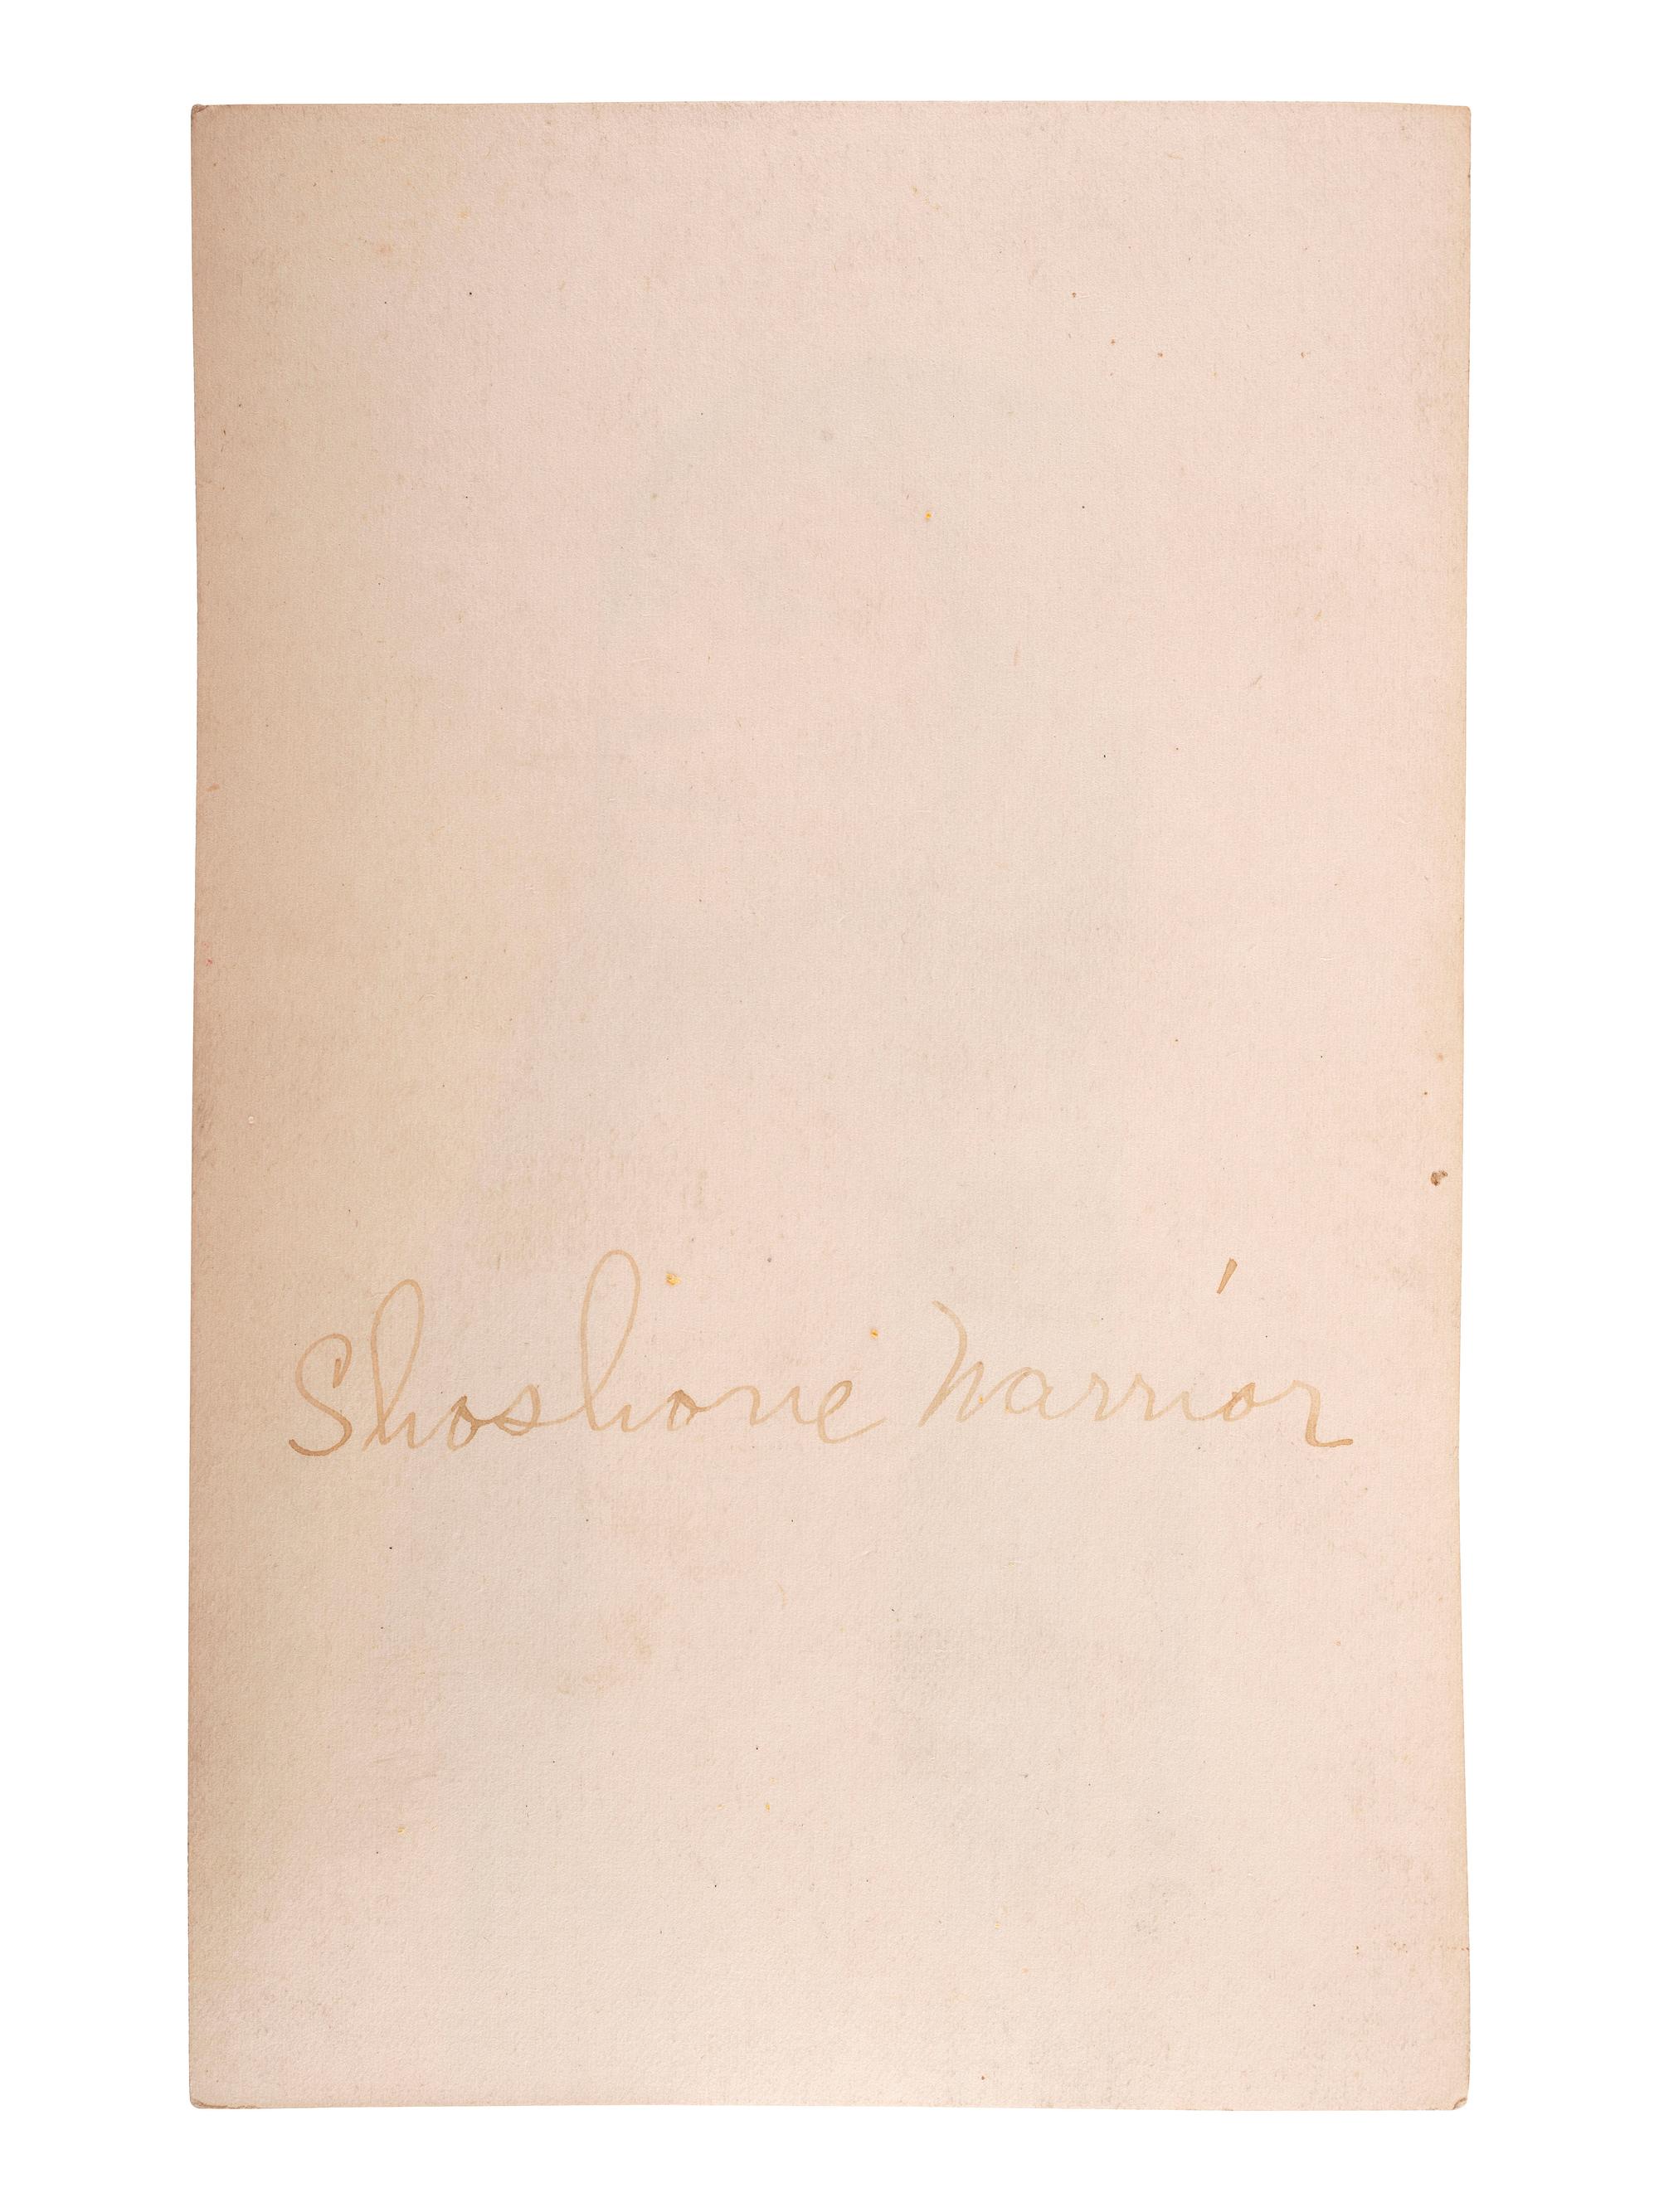 Shoshone Warrior